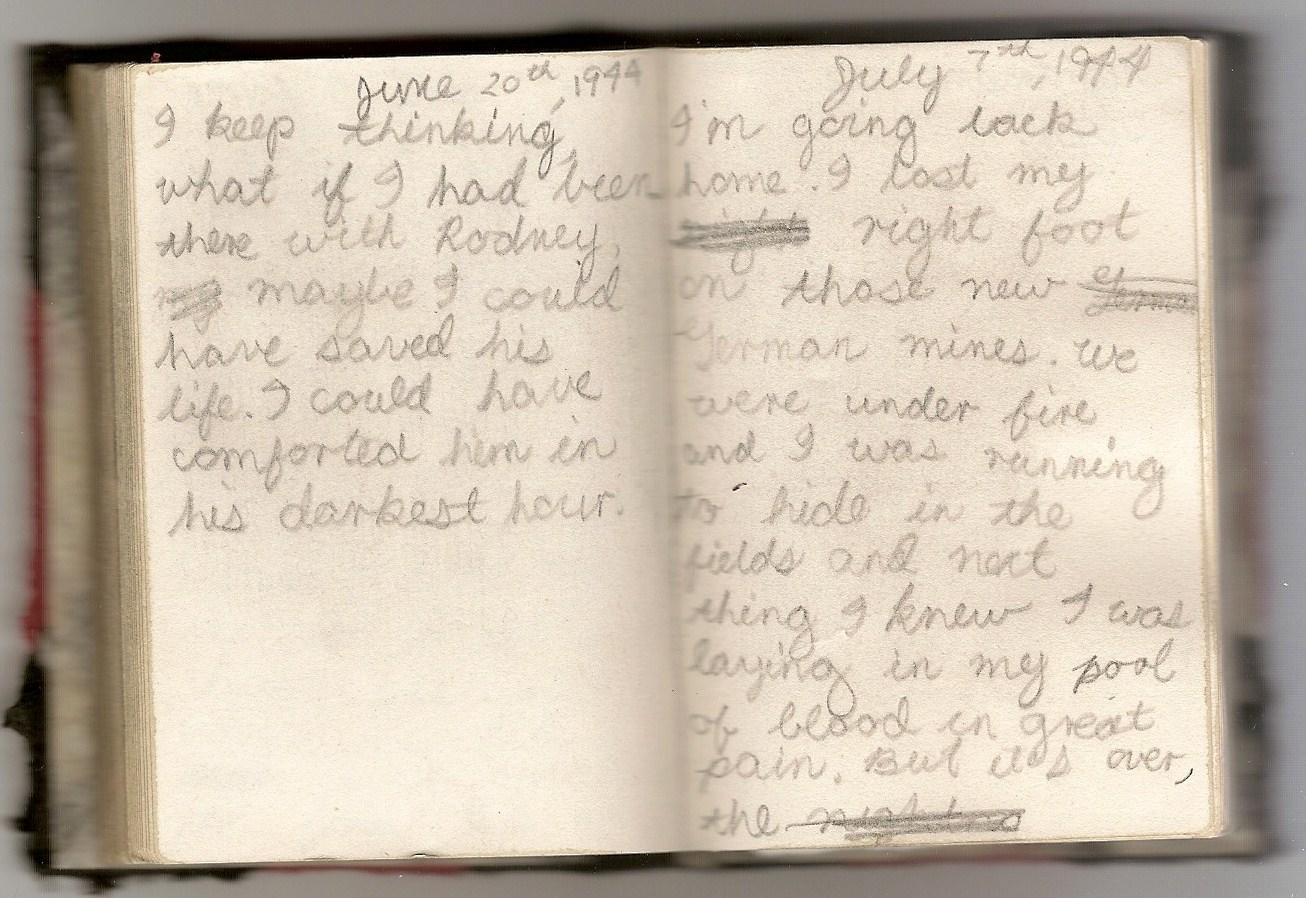 June 20th, 1944
I keep thinking,
what if I had been
there with Rodney,
maybe I could
have saved his
life. I could have
comforted him in
his darkest hour.
July 7th, 1944
I'm going back
home. I lost my
right foot
on those new
German mines. We
were under fire
and I was running
to hide in the
fields and next
thing I knew I was
laying in my pool
of blood in great
pain. But it's over,
the